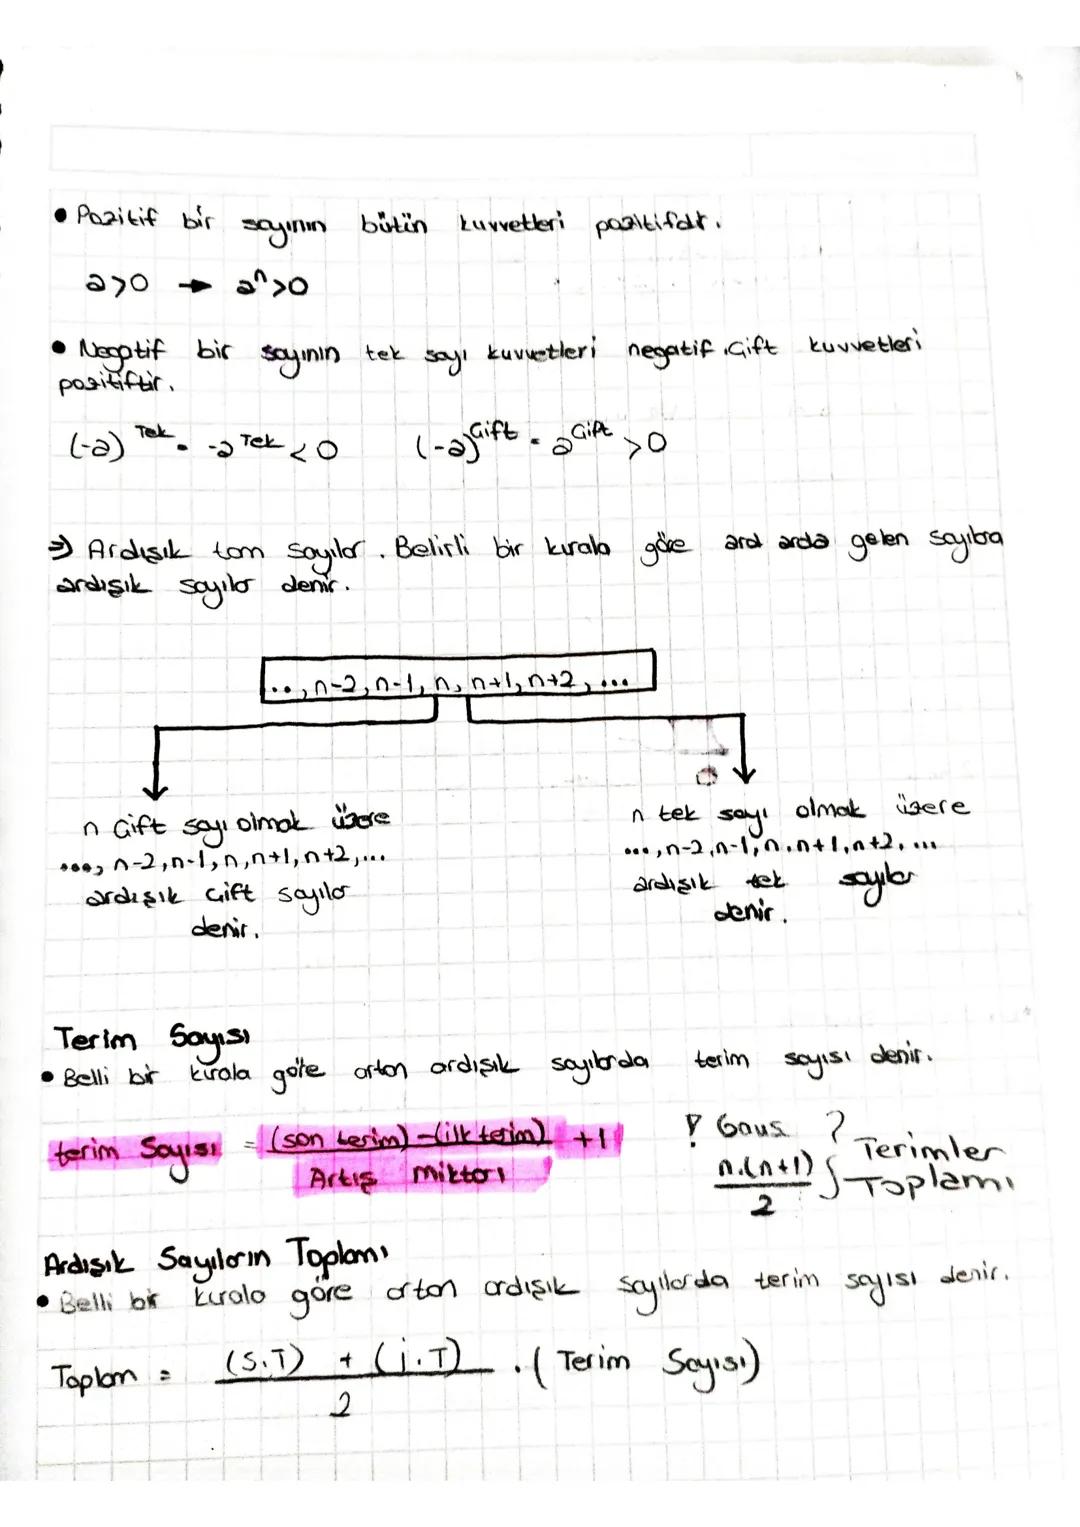 • Pozitif bir sayının bütün kuvvetleri pozitifdir.
a>0 → aⁿ>0
• Negatif bir sayının tek sayı kuvvetleri negatif, Çift kuvvetleri
pozitiftir.
(-a)^Tek = -a^Tek < 0 (-a)^Çift = a^Çift > 0
⇒ Ardışık tam sayılar. Belirli bir kurala göre ard arda gelen sayılara
ardışık sayılar denir.
..., n-2, n-1, n, n+1, n+2, ...
n Çift sayı olmak üzere
..., n-2, n-1, n, n+1, n+2, ...
ardışık Çift sayılar
denir.
n tek sayı olmak üzere
..., n-2, n-1, n, n+1, n+2, ...
ardışık tek sayılar
denir.
Terim Sayısı
• Belli bir kurala göre artan ardışık sayılarda terim sayısı denir.
terim Sayısı = (son terim) - (ilk terim) +1
Artış miktarı
! Gaus ?
n.(n+1)
2
Terimler
Toplamı
Ardışık Sayıların Toplamı
• Belli bir kurala göre artan ardışık sayılarda terim sayısı denir.
Toplam = (S.T) + (İ.T) . ( Terim Sayısı)
2